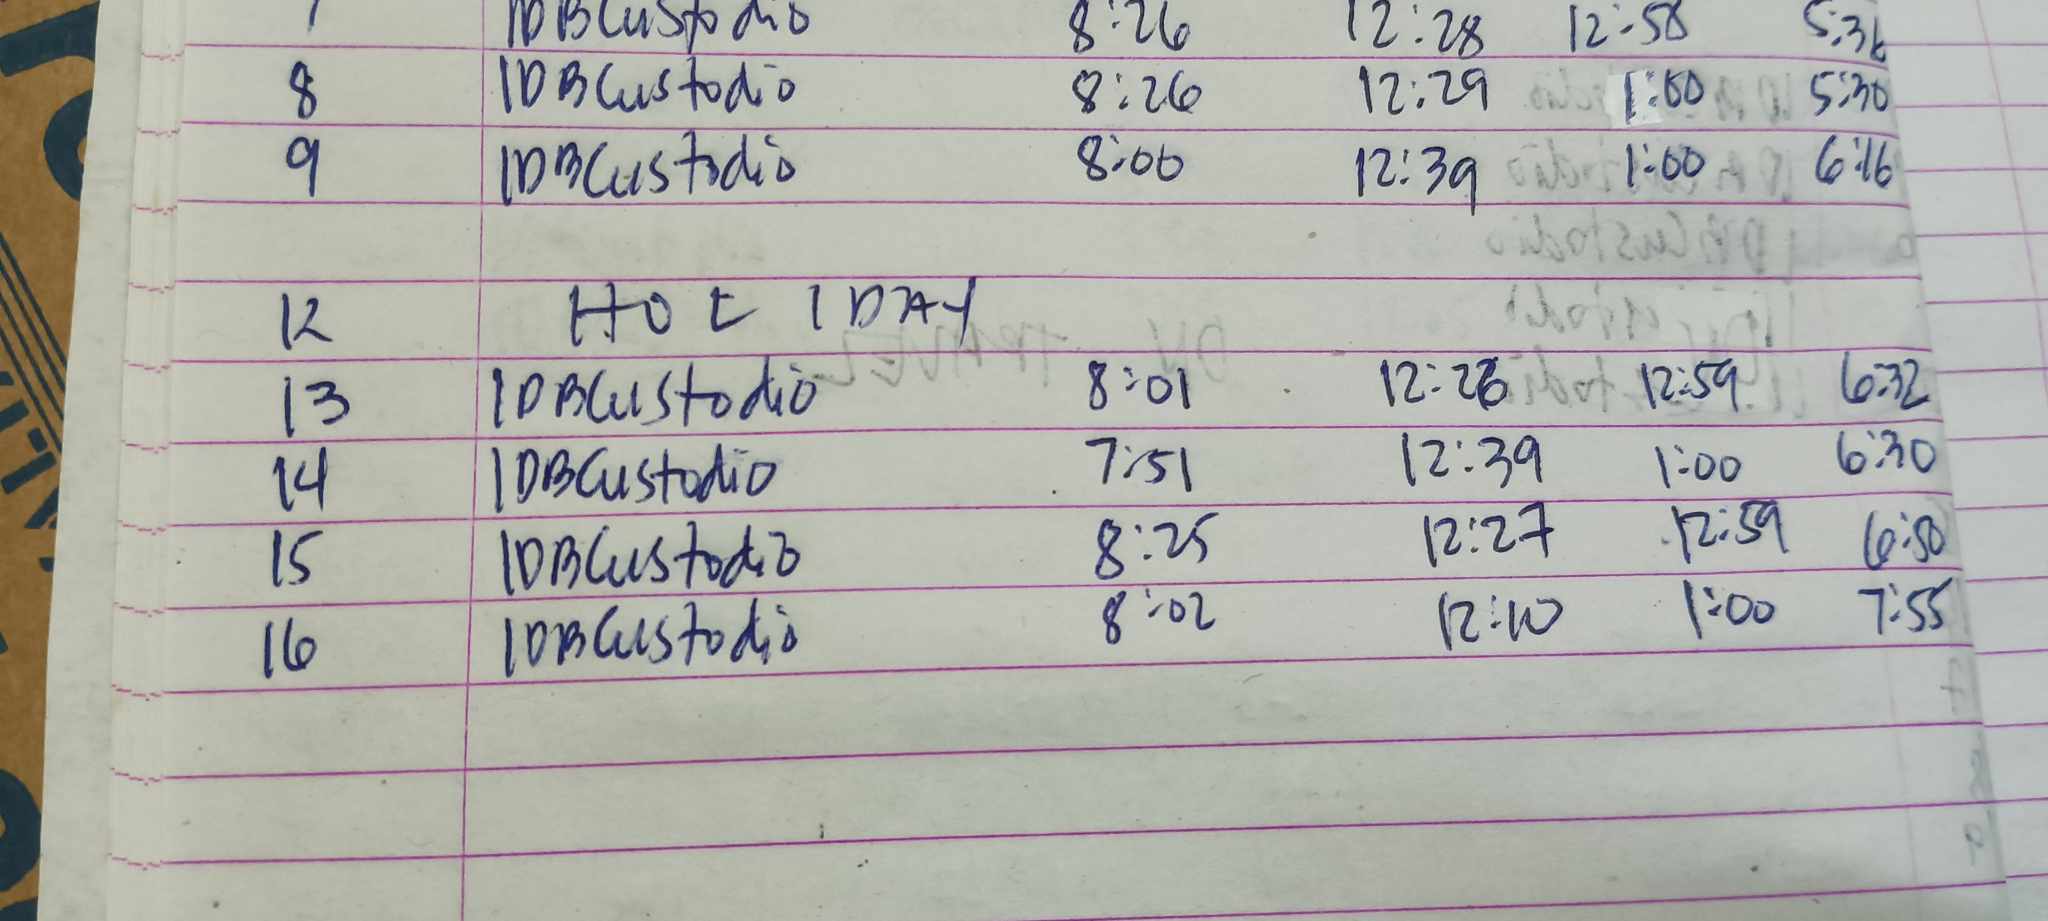 7 IDBCustodio 8:26 12:28 12:58 5:36
8 IDBCustodio 8:26 12:29 1:00 5:30
9 IDBCustodio 8:00 12:39 1:00 6:16
12 HOLIDAY
13 IDBCustodio 8:01 12:59 6:32
14 IDBCustodio 7:51 12:39 1:00 6:30
15 IDBCustodio 8:25 12:27 12:59 6:50
16 IDBCustodio 8:02 12:10 1:00 7:55